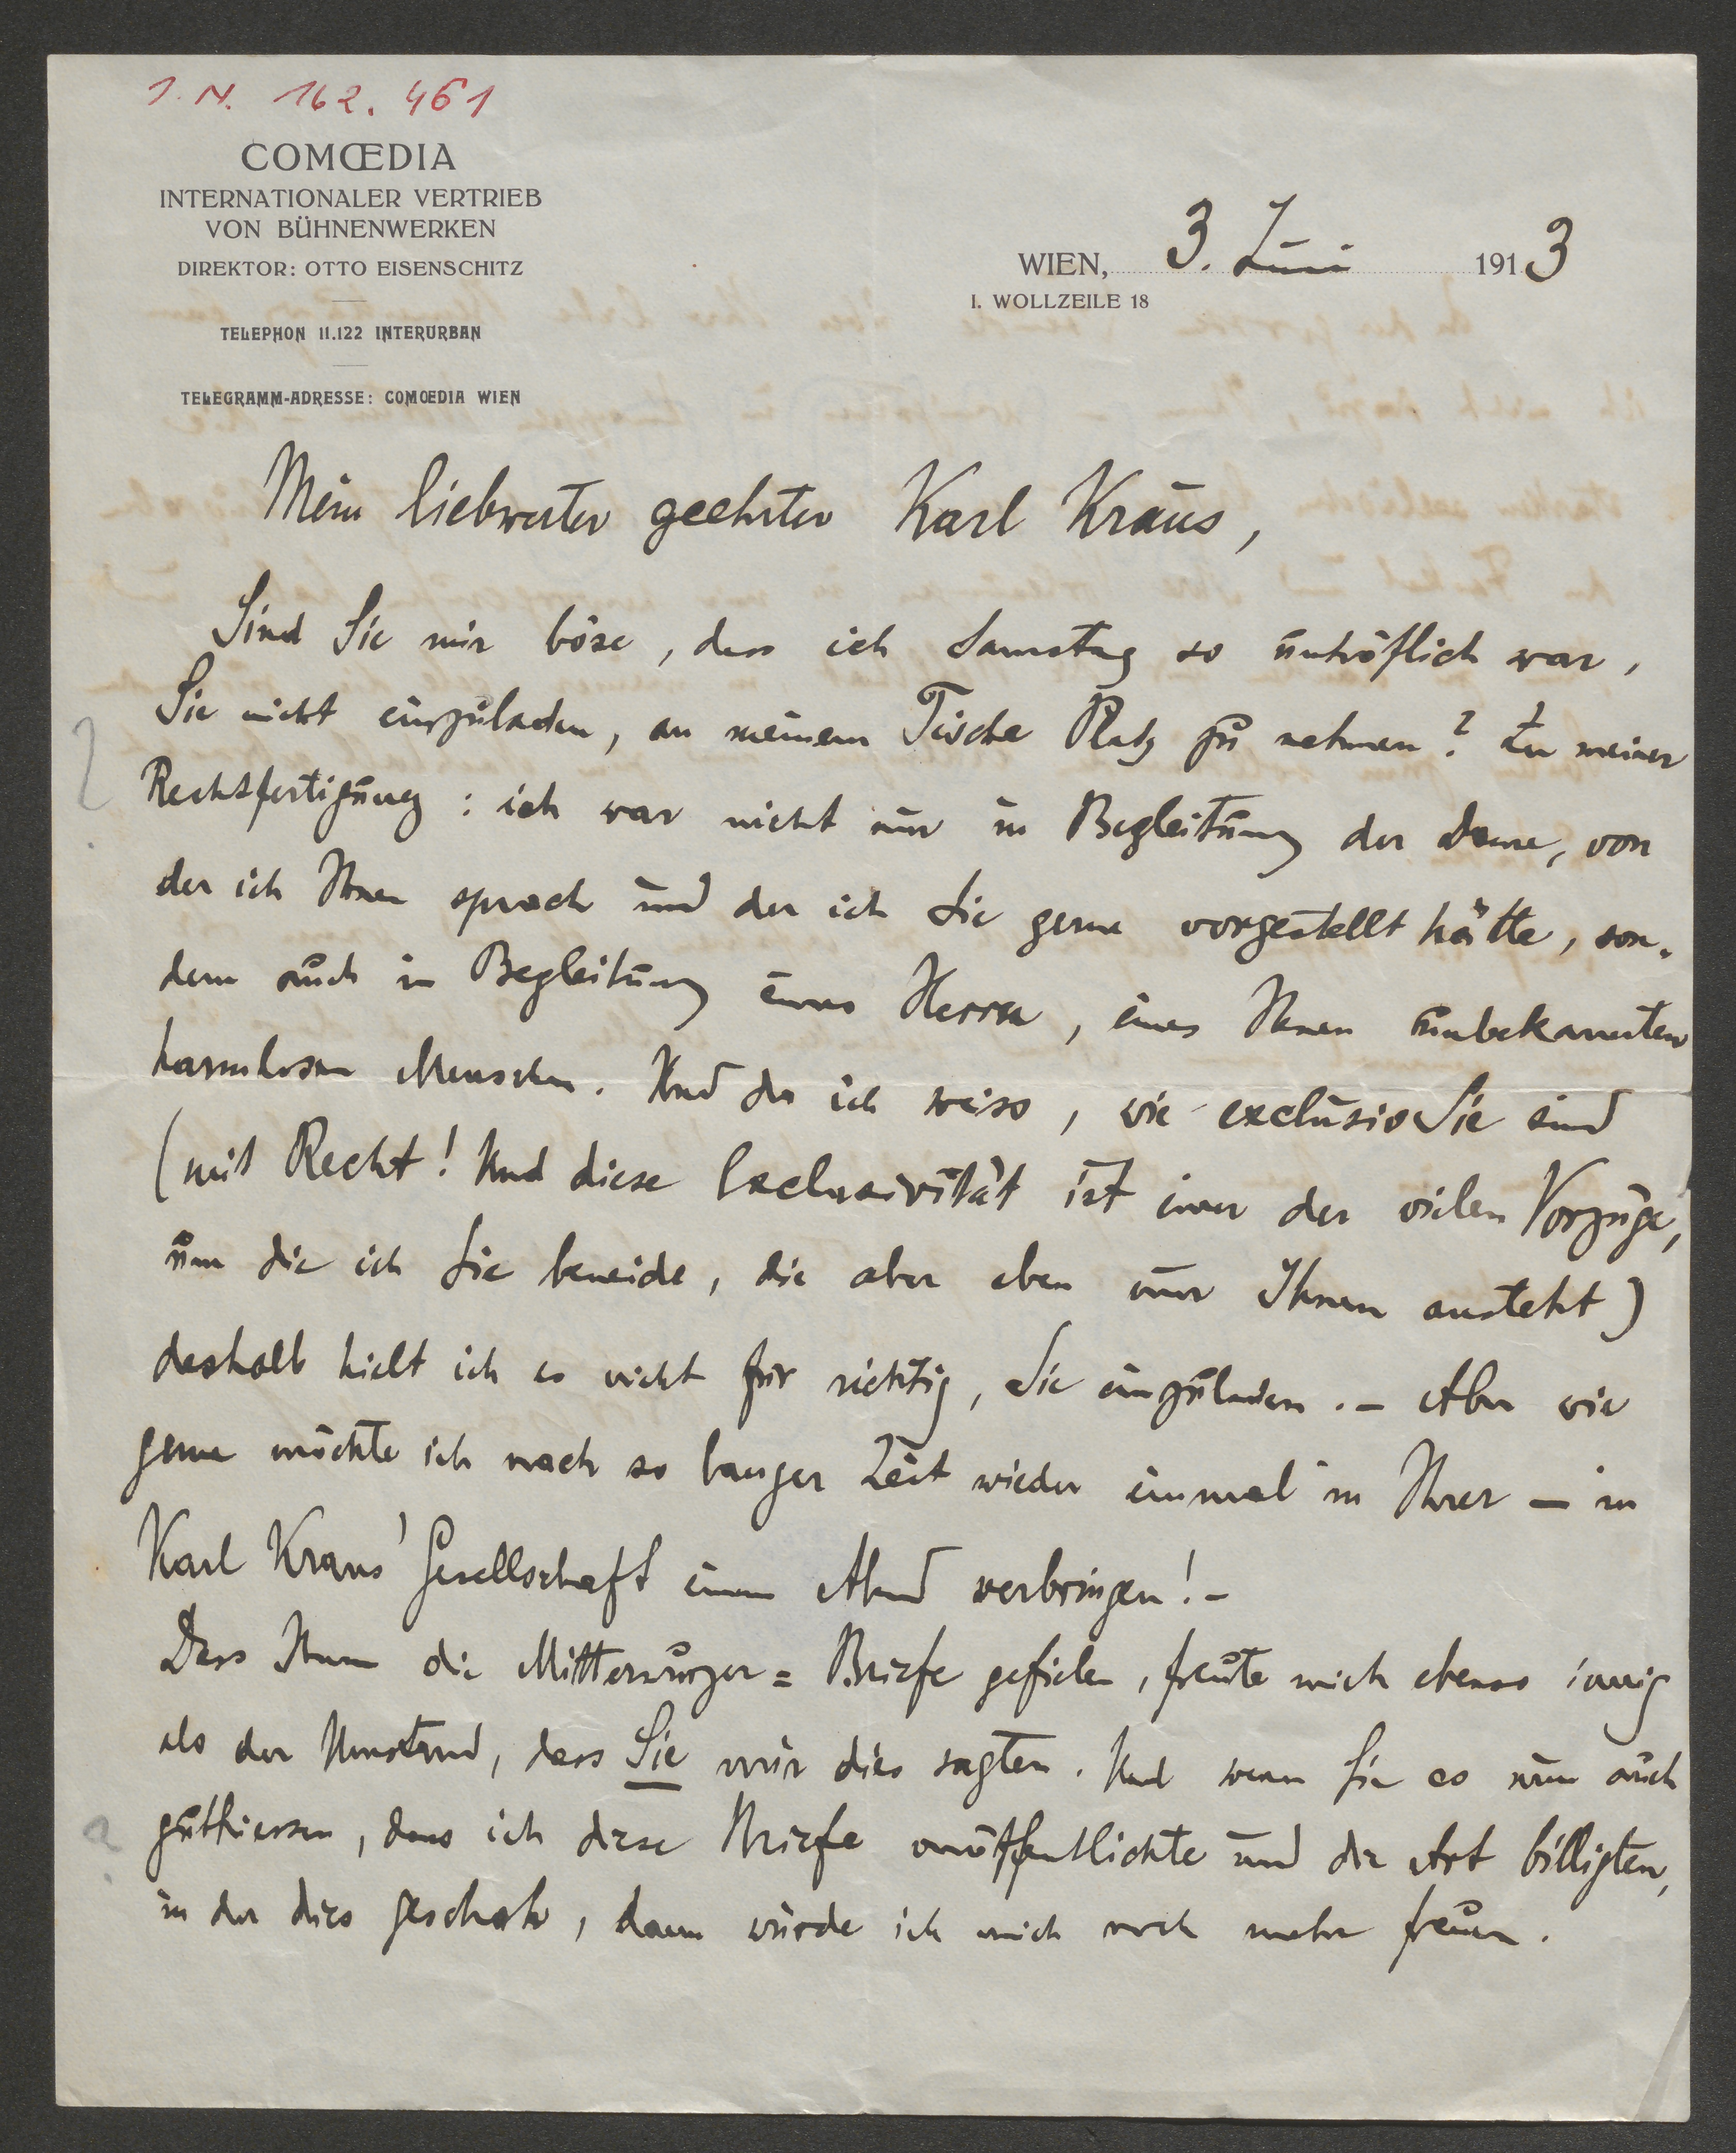 I. N. 162.461
COMŒDIA
INTERNATIONALER VERTRIEB
VON BÜHNENWERKEN
DIREKTOR: OTTO EISENSCHITZ
TELEPHON 11.122 INTERURBAN
TELEGRAMM-ADRESSE: COMŒDIA WIEN
WIEN, 3. Juni 1913
I. WOLLZEILE 18
Mein liebwerter geehrter Karl Kraus,
Sind Sie mir böse, dass ich Samstag so unhöflich war,
Sie nicht einzuladen, an meinem Tische Platz zu nehmen? Zu meiner
Rechtsfertigung: ich war nicht nur in Begleitung der Dame, von
der ich Ihnen sprach und der ich Sie gerne vorgestellt hätte, son-
dern auch in Begleitung eines Herrn, eines Ihnen unbekannten
harmlosen Menschen. Und da ich weiss, wie exclusiv Sie sind
(mit Recht! Und diese Exclusivität ist einer der vielen Vorzüge,
um die ich Sie beneide, die aber eben nur Ihnen ansteht)
deshalb hielt ich es nicht für richtig, Sie einzuladen. – Aber wie
gerne möchte ich nach so langer Zeit wieder einmal in Ihrer – in
Karl Kraus' Gesellschaft einen Abend verbringen! –
Dass Ihnen die Mitterwurzer = Briefe gefielen, freute mich ebenso innig
als der Umstand, dass Sie mir dies sagten. Und wenn Sie es nun auch
guthiessen, dass ich diese Briefe veröffentlichte und die Art billigten,
in der dies geschah, dann würde ich mich noch mehr freuen.